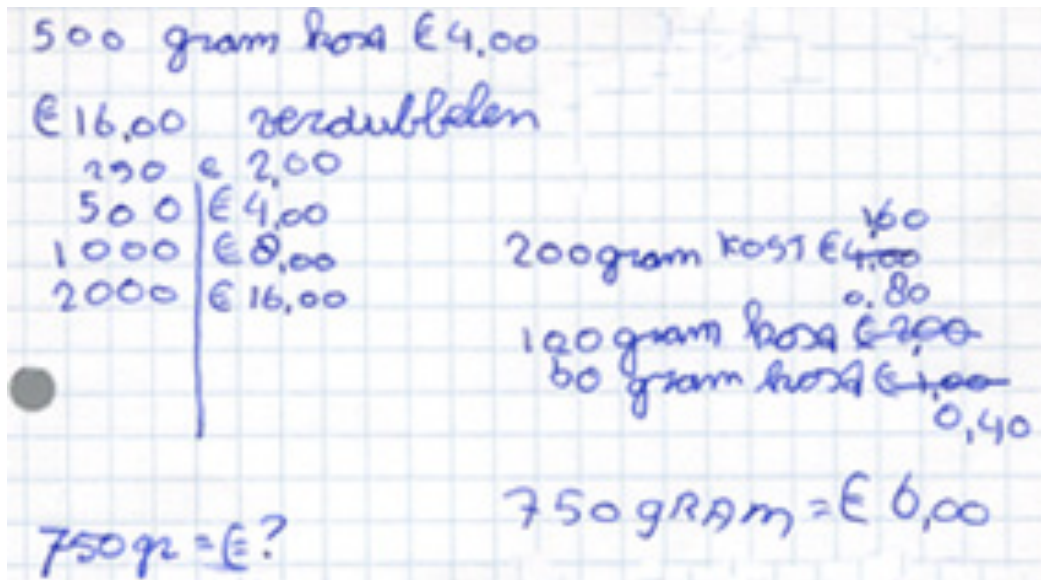 500 gram kost €4,00
€16,00 verdubbelen
250 € 2,00
500 €4,00
1000 €8,00
2000 €16,00
750 gr = €?
1,60
200gram KOST €4,00
0,80
100 gram kost €2,00
50 gram kost €1,00
0,40
750 gRAm = € 6,00